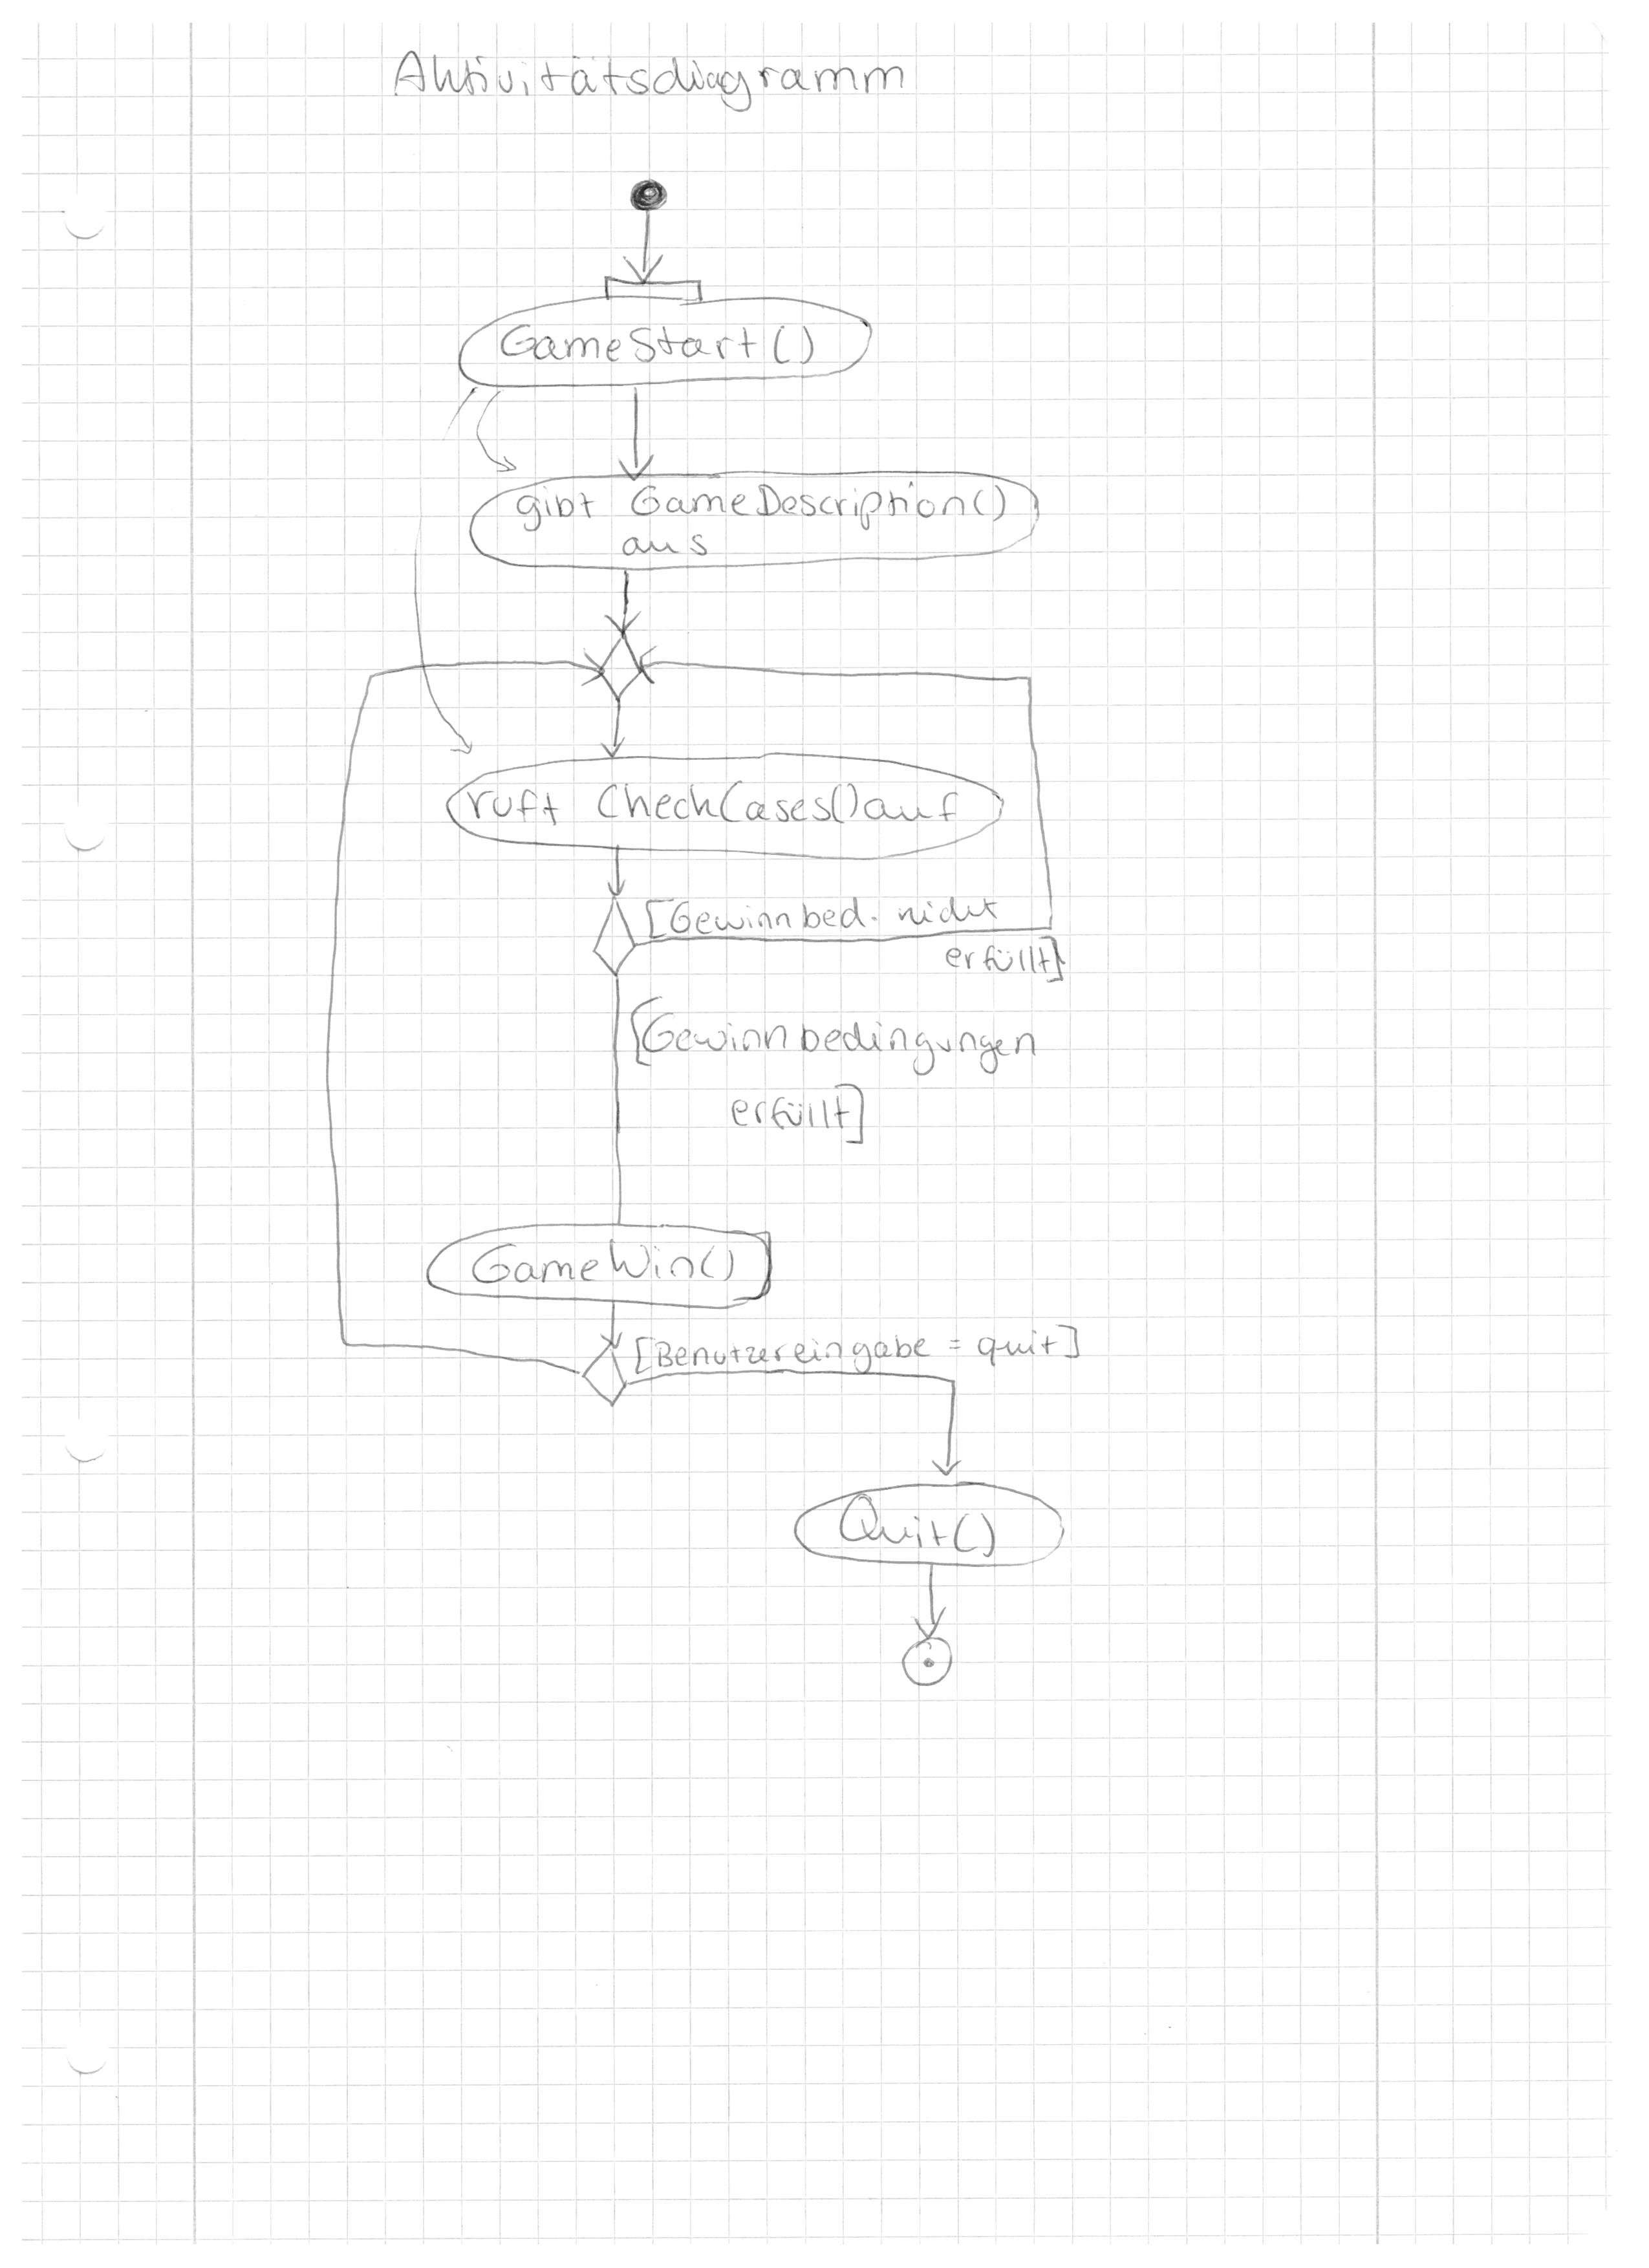 Aktivitätsdiagramm
GameStart()
gibt GameDescription()
aus
ruft CheckCases() auf
[Gewinnbed. nicht
erfüllt]
[Gewinnbedingungen
erfüllt]
GameWin()
[Benutzereingabe = quit]
Quit()